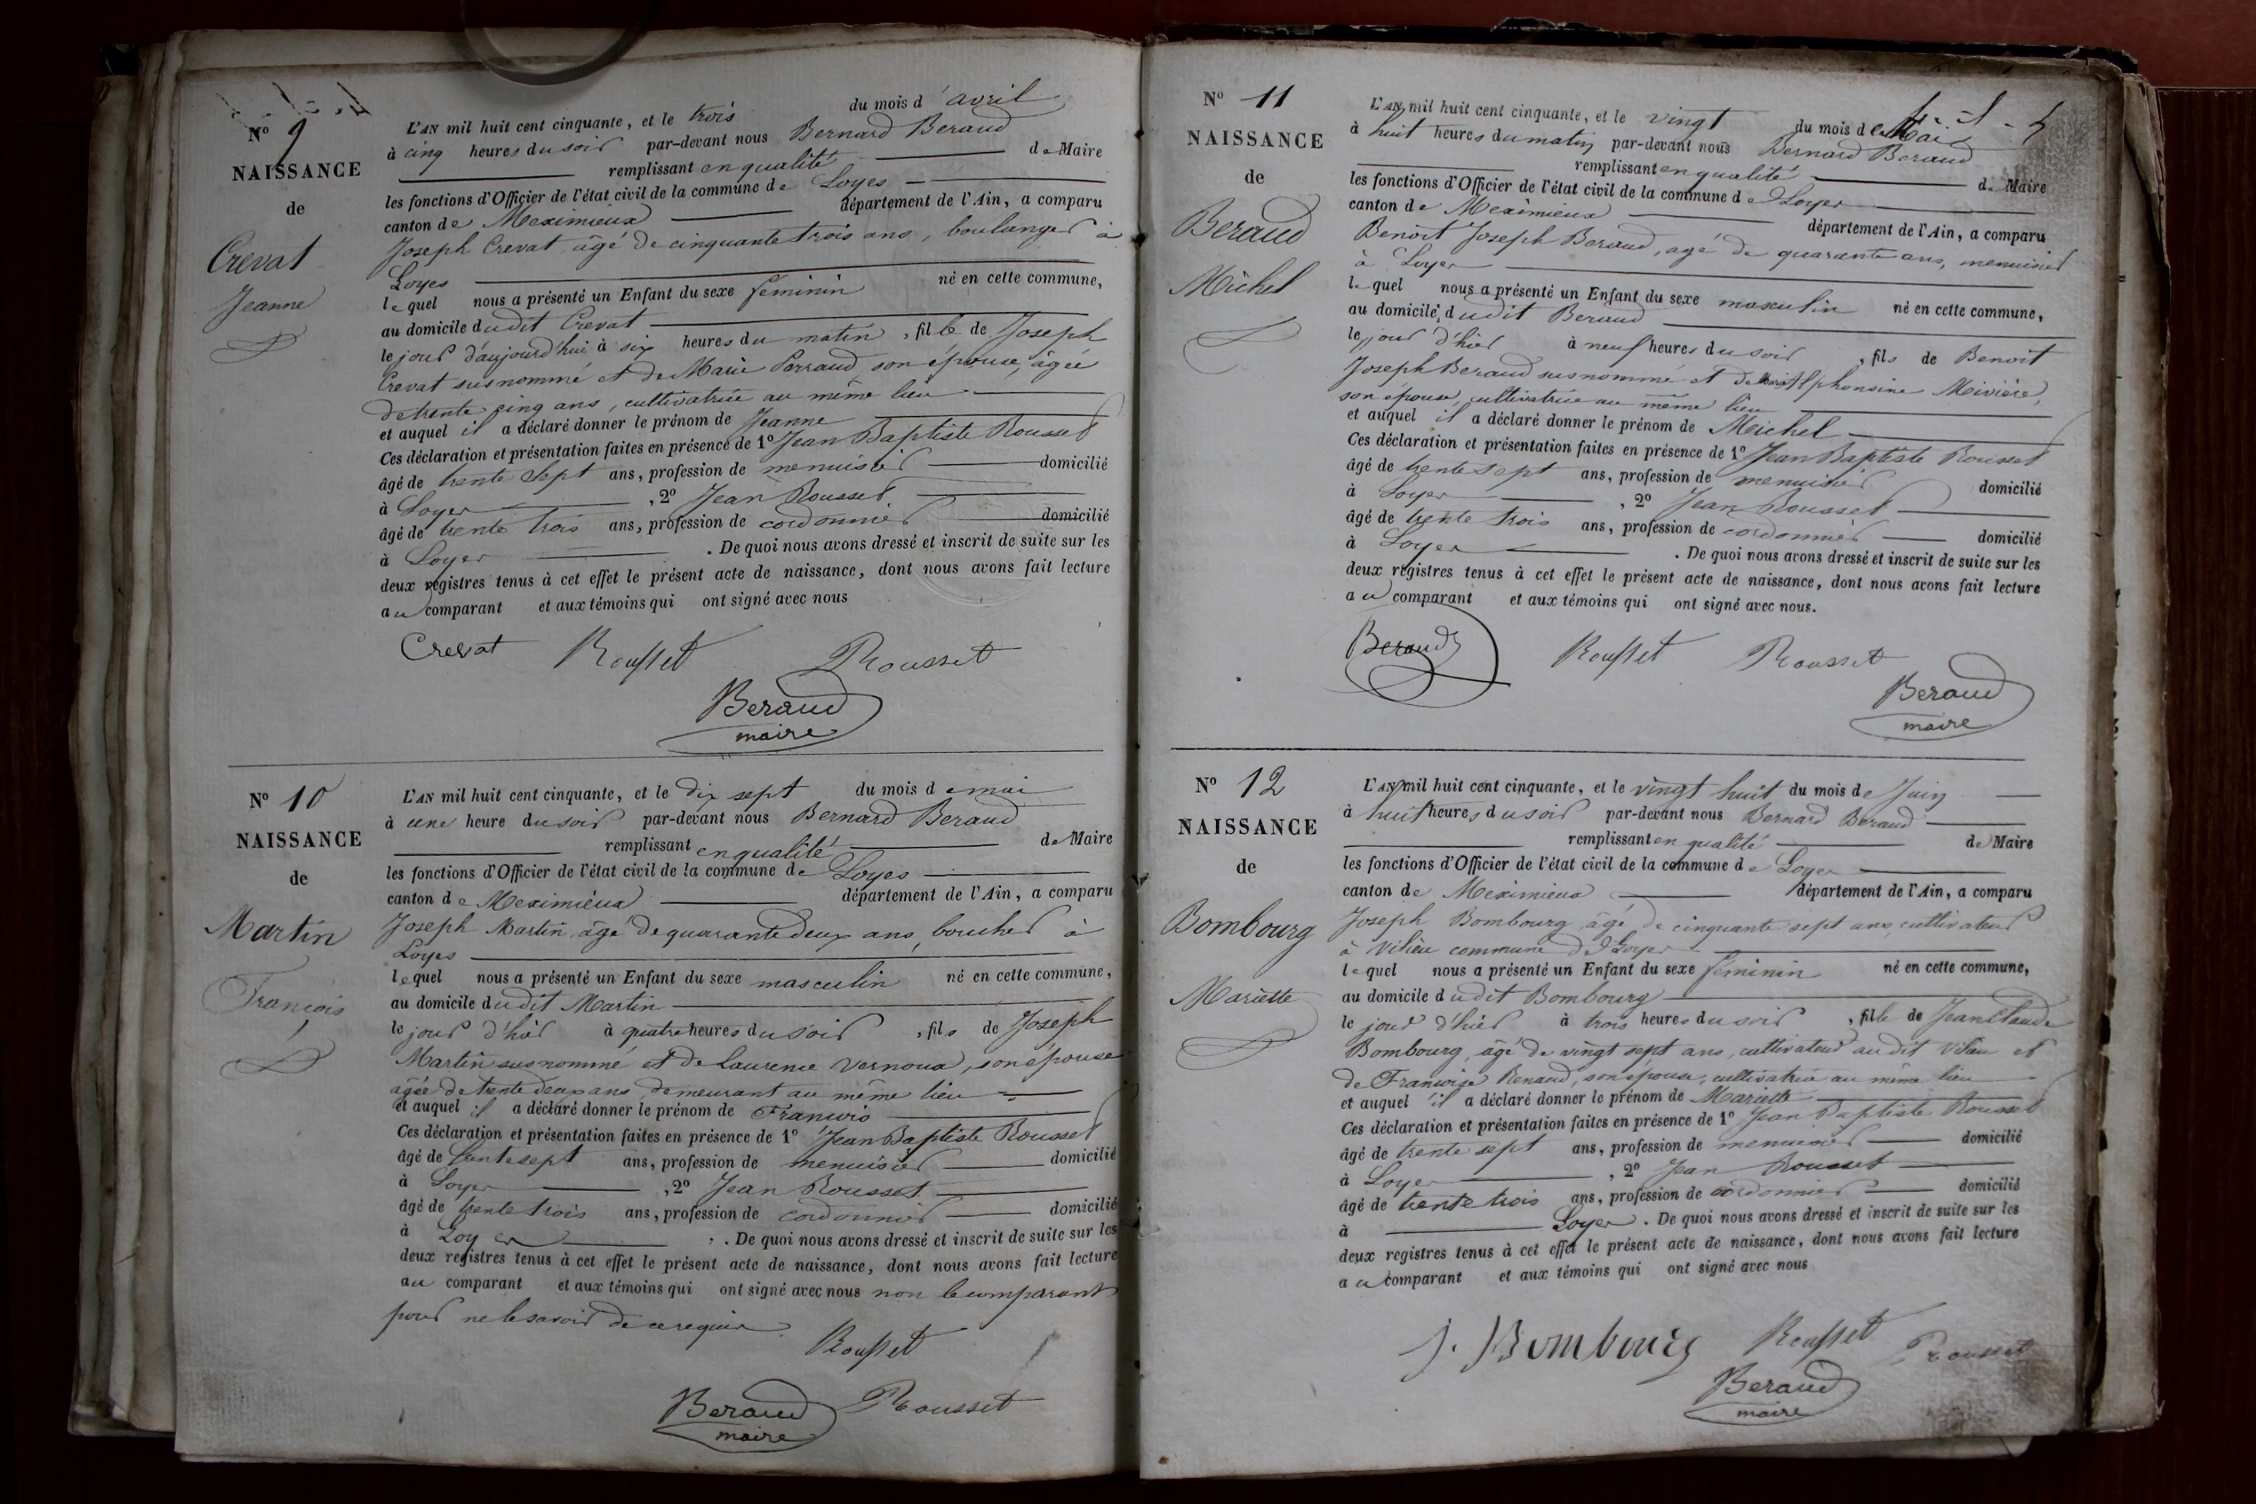 N° 9
NAISSANCE
de
Crevat
Jeanne
L'AN mil huit cent cinquante, et le trois du mois d'avril
à cinq heures du soir par-devant nous Bernard Beraud
remplissant en qualité de Maire
les fonctions d'Officier de l'état civil de la commune de Loyes
canton de Meximieux département de l'Ain, a comparu
Joseph Crevat âgé de cinquante trois ans, boulanger à
Loyes
lequel nous a présenté un Enfant du sexe féminin né en cette commune,
au domicile dudit Crevat
le jour d'aujourd'hui à six heures du matin, fille de Joseph
Crevat susnommé et de Marie Perraud son épouse, âgée
de trente cinq ans, cultivatrice au même lieu
et auquel il a déclaré donner le prénom de Jeanne
Ces déclaration et présentation faites en présence de 1° Jean Baptiste Rousset
âgé de trente sept ans, profession de menuisier domicilié
à Loyes, 2° Jean Rousset
âgé de trente trois ans, profession de cordonnier domicilié
à Loyes. De quoi nous avons dressé et inscrit de suite sur les
deux registres tenus à cet effet le présent acte de naissance, dont nous avons fait lecture
au comparant et aux témoins qui ont signé avec nous
Crevat Rousset Rousset
Beraud
maire
N° 10
NAISSANCE
de
Martin
François
L'AN mil huit cent cinquante, et le dix sept du mois de mai
à une heure du soir par-devant nous Bernard Beraud
remplissant en qualité de Maire
les fonctions d'Officier de l'état civil de la commune de Loyes
canton de Meximieux département de l'Ain, a comparu
Joseph Martin âgé de quarante deux ans, boucher à
Loyes
lequel nous a présenté un Enfant du sexe masculin né en cette commune,
au domicile dudit Martin
le jour d'hier à quatre heures du soir, fils de Joseph
Martin susnommé et de Laurence Vernoux, son épouse
âgée de trente deux ans, demeurant au même lieu
et auquel il a déclaré donner le prénom de François
Ces déclaration et présentation faites en présence de 1° Jean Baptiste Rousset
âgé de trente sept ans, profession de menuisier domicilié
à Loyes, 2° Jean Rousset
âgé de trente trois ans, profession de cordonnier domicilié
à Loyes. De quoi nous avons dressé et inscrit de suite sur les
deux registres tenus à cet effet le présent acte de naissance, dont nous avons fait lecture
au comparant et aux témoins qui ont signé avec nous non le comparant
pour ne le savoir de ce requis
Rousset
Beraud Rousset
maire
N° 11
NAISSANCE
de
Beraud
Michel
L'AN mil huit cent cinquante, et le vingt du mois de Mai
à huit heures du matin par-devant nous Bernard Beraud
remplissant en qualité de Maire
les fonctions d'Officier de l'état civil de la commune de Loyes
canton de Meximieux département de l'Ain, a comparu
Benoit Joseph Beraud, agé de quarante ans, menuisier
à Loyes
lequel nous a présenté un Enfant du sexe masculin né en cette commune,
au domicile dudit Beraud
le jour d'hier à neuf heures du soir, fils de Benoit
Joseph Beraud susnommé et de Marie Alphonsine Meivière,
son épouse, cultivatrice au même lieu
et auquel il a déclaré donner le prénom de Michel
Ces déclaration et présentation faites en présence de 1° Jean Baptiste Rousset
âgé de trente sept ans, profession de menuisier domicilié
à Loyes, 2° Jean Rousset
âgé de trente trois ans, profession de cordonnier domicilié
à Loyes. De quoi nous avons dressé et inscrit de suite sur les
deux registres tenus à cet effet le présent acte de naissance, dont nous avons fait lecture
au comparant et aux témoins qui ont signé avec nous.
Beraud Rousset Rousset
Beraud
maire
N° 12
NAISSANCE
de
Bombourg
Mariette
L'AN mil huit cent cinquante, et le vingt huit du mois de Juin
à huit heures du soir par-devant nous Bernard Beraud
remplissant en qualité de Maire
les fonctions d'Officier de l'état civil de la commune de Loyes
canton de Meximieux département de l'Ain, a comparu
Joseph Bombourg âgé de cinquante sept ans, cultivateur
à Vilieu commune de Loyes
lequel nous a présenté un Enfant du sexe féminin né en cette commune,
au domicile dudit Bombourg
le jour d'hier à trois heures du soir, fille de Jean Claude
Bombourg, âgé de vingt sept ans, cultivateur audit Vilieu et
de Françoise Renaud, son épouse, cultivatrice au même lieu
et auquel il a déclaré donner le prénom de Mariette
Ces déclaration et présentation faites en présence de 1° Jean Baptiste Rousset
âgé de trente sept ans, profession de menuisier domicilié
à Loyes, 2° Jean Rousset
âgé de trente trois ans, profession de cordonnier domicilié
à Loyes. De quoi nous avons dressé et inscrit de suite sur les
deux registres tenus à cet effet le présent acte de naissance, dont nous avons fait lecture
au comparant et aux témoins qui ont signé avec nous
J. Bombourg Rousset Rousset
Beraud
maire